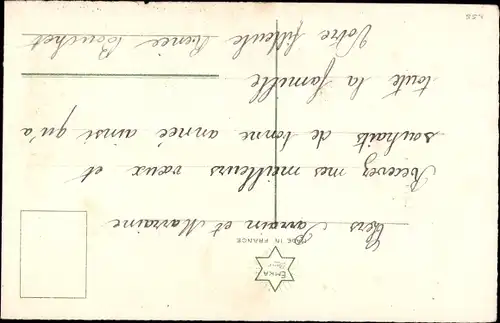 Chers Parrain et Marraine
Recevez mes meilleurs vœux et
souhaits de bonne année ainsi qu'à
toute la famille
Votre filleule Renée Bouchet
MADE IN FRANCE
EMKA